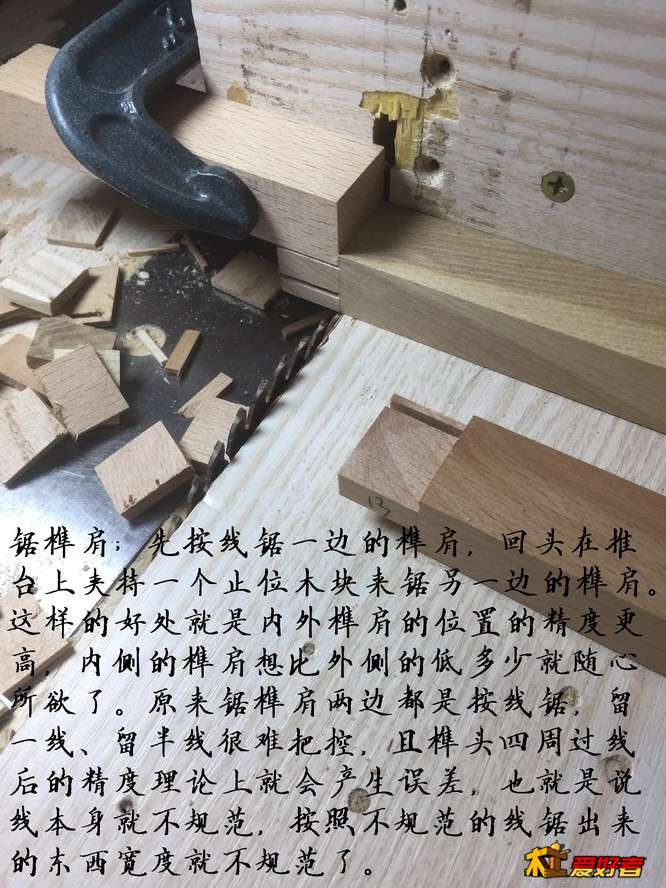 13
锯榫肩；先按线锯一边的榫肩，回头在推
台上夹持一个止位木块来锯另一边的榫肩。
这样的好处就是内外榫肩的位置的精度更
高，内侧的榫肩想比外侧的低多少就随心
所欲了。原来锯榫肩两边都是按线锯，留
一线、留半线很难把控，且榫头四周过线
后的精度理论上就会产生误差，也就是说
线本身就不规范，按照不规范的线锯出来
的东西宽度就不规范了。
木工爱好者